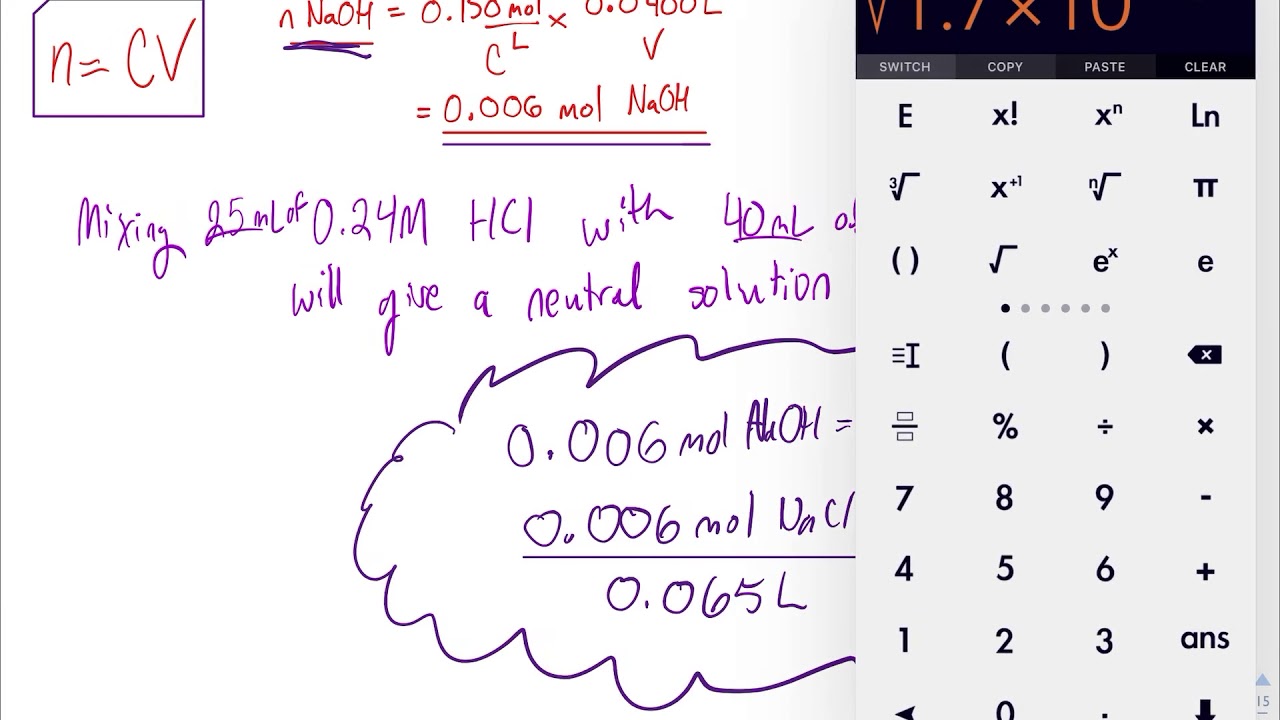 n NaOH = 0.150 mol × 0.0400L
L
C V
n = CV
= 0.006 mol NaOH
Mixing 25mL of 0.24M HCl with 40mL
will give a neutral solution
0.006 mol NaOH =
0.006 mol NaCl
0.065L
√1.7×10
SWITCH COPY PASTE CLEAR
E x! xⁿ Ln
³√ x⁺¹ ⁿ√ π
() √ eˣ e
( )
% ÷ ×
7 8 9 -
4 5 6 +
1 2 3 ans
0 .
15